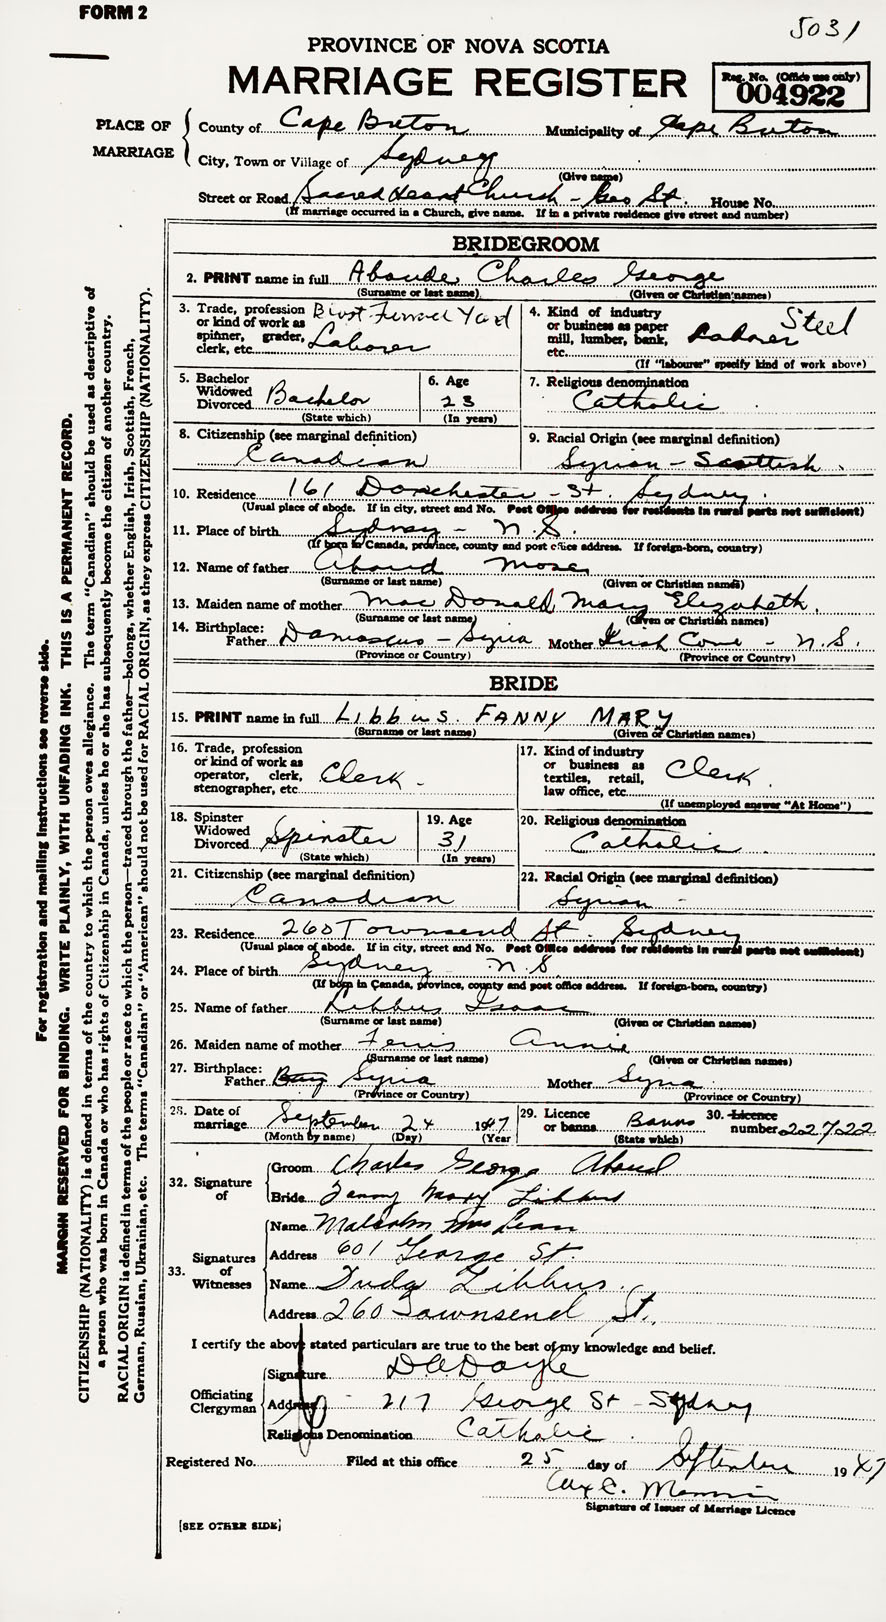 FORM 2
5031
PROVINCE OF NOVA SCOTIA
MARRIAGE REGISTER
Reg. No. (Office use only)
004922
PLACE OF MARRIAGE
County of Cape Breton Municipality of Cape Breton
City, Town or Village of Sydney
(Give name)
Street or Road Sacred Heart Church - Geo St. House No.
(If marriage occurred in a Church, give name. If in a private residence give street and number)
BRIDEGROOM
2. PRINT name in full Charles George
(Surname or last name) (Given or Christian names)
3. Trade, profession or kind of work as spinner, grader, clerk, etc. Yard Laborer
4. Kind of industry or business as paper mill, lumber, bank, etc. Laborer Steel
(If "labourer" specify kind of work above)
5. Bachelor Widowed Divorced Bachelor
(State which)
6. Age 23
(In years)
7. Religious denomination Catholic
8. Citizenship (see marginal definition) Canadian
9. Racial Origin (see marginal definition) Syrian - Scottish
10. Residence 161 Dorchester - St. Sydney
(Usual place of abode. If in city, street and No. Post Office address for residents in rural parts not sufficient)
11. Place of birth Sydney - N.S.
(If born in Canada, province, county and post office address. If foreign-born, country)
12. Name of father Aboud Moses
(Surname or last name) (Given or Christian names)
13. Maiden name of mother Mac Donald, Mary Elizabeth.
(Surname or last name) (Given or Christian names)
14. Birthplace: Father Damascus - Syria Mother Irish Cove - N.S.
(Province or Country) (Province or Country)
BRIDE
15. PRINT name in full LIbbus. FANNY MARY
(Surname or last name) (Given or Christian names)
16. Trade, profession or kind of work as operator, clerk, stenographer, etc. Clerk -
17. Kind of industry or business as textiles, retail, law office, etc. Clerk
(If unemployed answer "At Home")
18. Spinster Widowed Divorced Spinster
(State which)
19. Age 31
(In years)
20. Religious denomination Catholic
21. Citizenship (see marginal definition) Canadian
22. Racial Origin (see marginal definition) Syrian -
23. Residence 260 Townsend St. Sydney
(Usual place of abode. If in city, street and No. Post Office address for residents in rural parts not sufficient)
24. Place of birth Sydney - N.S.
(If born in Canada, province, county and post office address. If foreign-born, country)
25. Name of father Libbus Isaac
(Surname or last name) (Given or Christian names)
26. Maiden name of mother Ferris Annie
(Surname or last name) (Given or Christian names)
27. Birthplace: Father Syria Mother Syria
(Province or Country) (Province or Country)
28. Date of marriage September 24 1947
(Month by name) (Day) (Year)
29. Licence or banns Banns
(State which)
30. Licence number 22722
32. Signature of
Groom Charles George Aboud
Bride Fanny Mary Libbus
33. Signatures of Witnesses
Name Malcolm
Address 601 George St.
Name Libbus.
Address 260 Townsend St.
I certify the above stated particulars are true to the best of my knowledge and belief.
Officiating Clergyman
Signature Doyle
Address - 217 George St - Sydney
Religious Denomination Catholic
Registered No. Filed at this office 25 day of September 1947
Signature of Issuer of Marriage Licence
[SEE OTHER SIDE]
For registration and mailing instructions see reverse side.
MARGIN RESERVED FOR BINDING. WRITE PLAINLY, WITH UNFADING INK. THIS IS A PERMANENT RECORD.
CITIZENSHIP (NATIONALITY) is defined in terms of the country to which the person owes allegiance. The term "Canadian" should be used as descriptive of
a person who was born in Canada or who has rights of Citizenship in Canada, unless he or she has subsequently become the citizen of another country.
RACIAL ORIGIN is defined in terms of the people or race to which the person—traced through the father—belongs, whether English, Irish, Scottish, French,
German, Russian, Ukrainian, etc. The terms "Canadian" or "American" should not be used for RACIAL ORIGIN, as they express CITIZENSHIP (NATIONALITY).